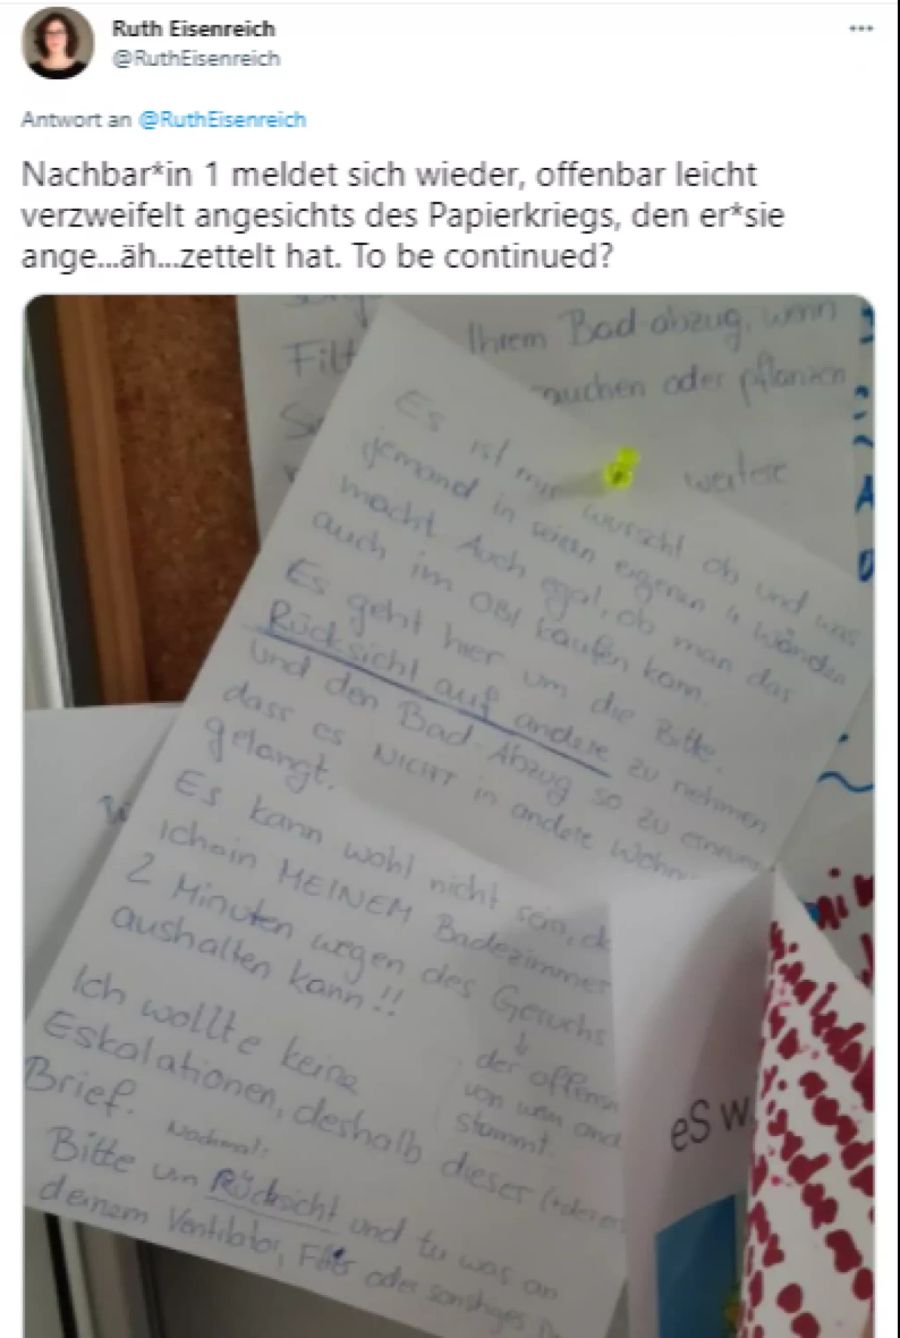 Ruth Eisenreich
@RuthEisenreich
Antwort an @RuthEisenreich
Nachbar*in 1 meldet sich wieder, offenbar leicht
verzweifelt angesichts des Papierkriegs, den er*sie
ange...äh...zettelt hat. To be continued?
Ihrem Bad abzug, wenn
Filt
auchen oder pflanzen
weitere
Es ist mir wurscht ob und was
jemand in seinen eigenen 4 Wänden
macht. Auch egal, ob man das
auch im OBI kaufen kann.
Es geht hier um die Bitte,
Rücksicht auf andere zu nehmen
und den Bad-Abzug so zu erneuern
dass es NICHT in andere Wohn
gelangt.
Es kann wohl nicht sein, d
ich in MEINEM Badezimmer
2 Minuten wegen des Geruchs
aushalten kann!!
der offens
von wem and
stammt.
Ich wollte keine
Eskalationen, deshalb dieser
Brief.
Nochmal:
Bitte um Rücksicht und tu was an
deinem Ventilator, Filter oder sonstiges
eS w